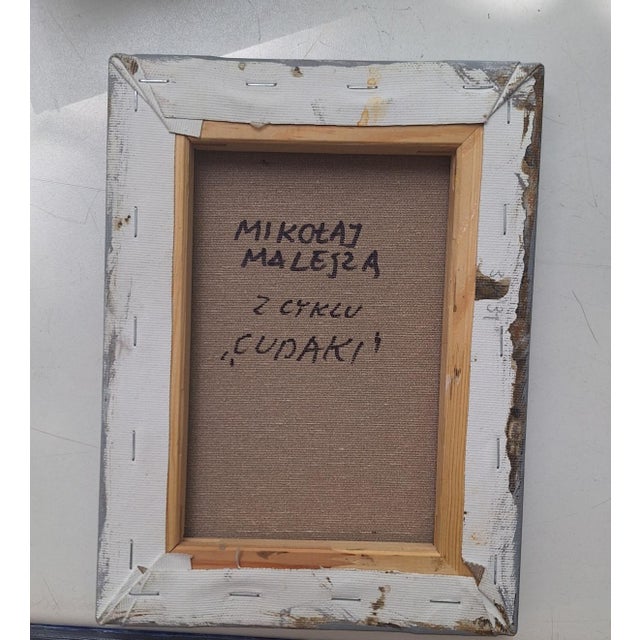 MIKOŁAJ
MALEJSZA
Z CYKLU
„CUDAKI"